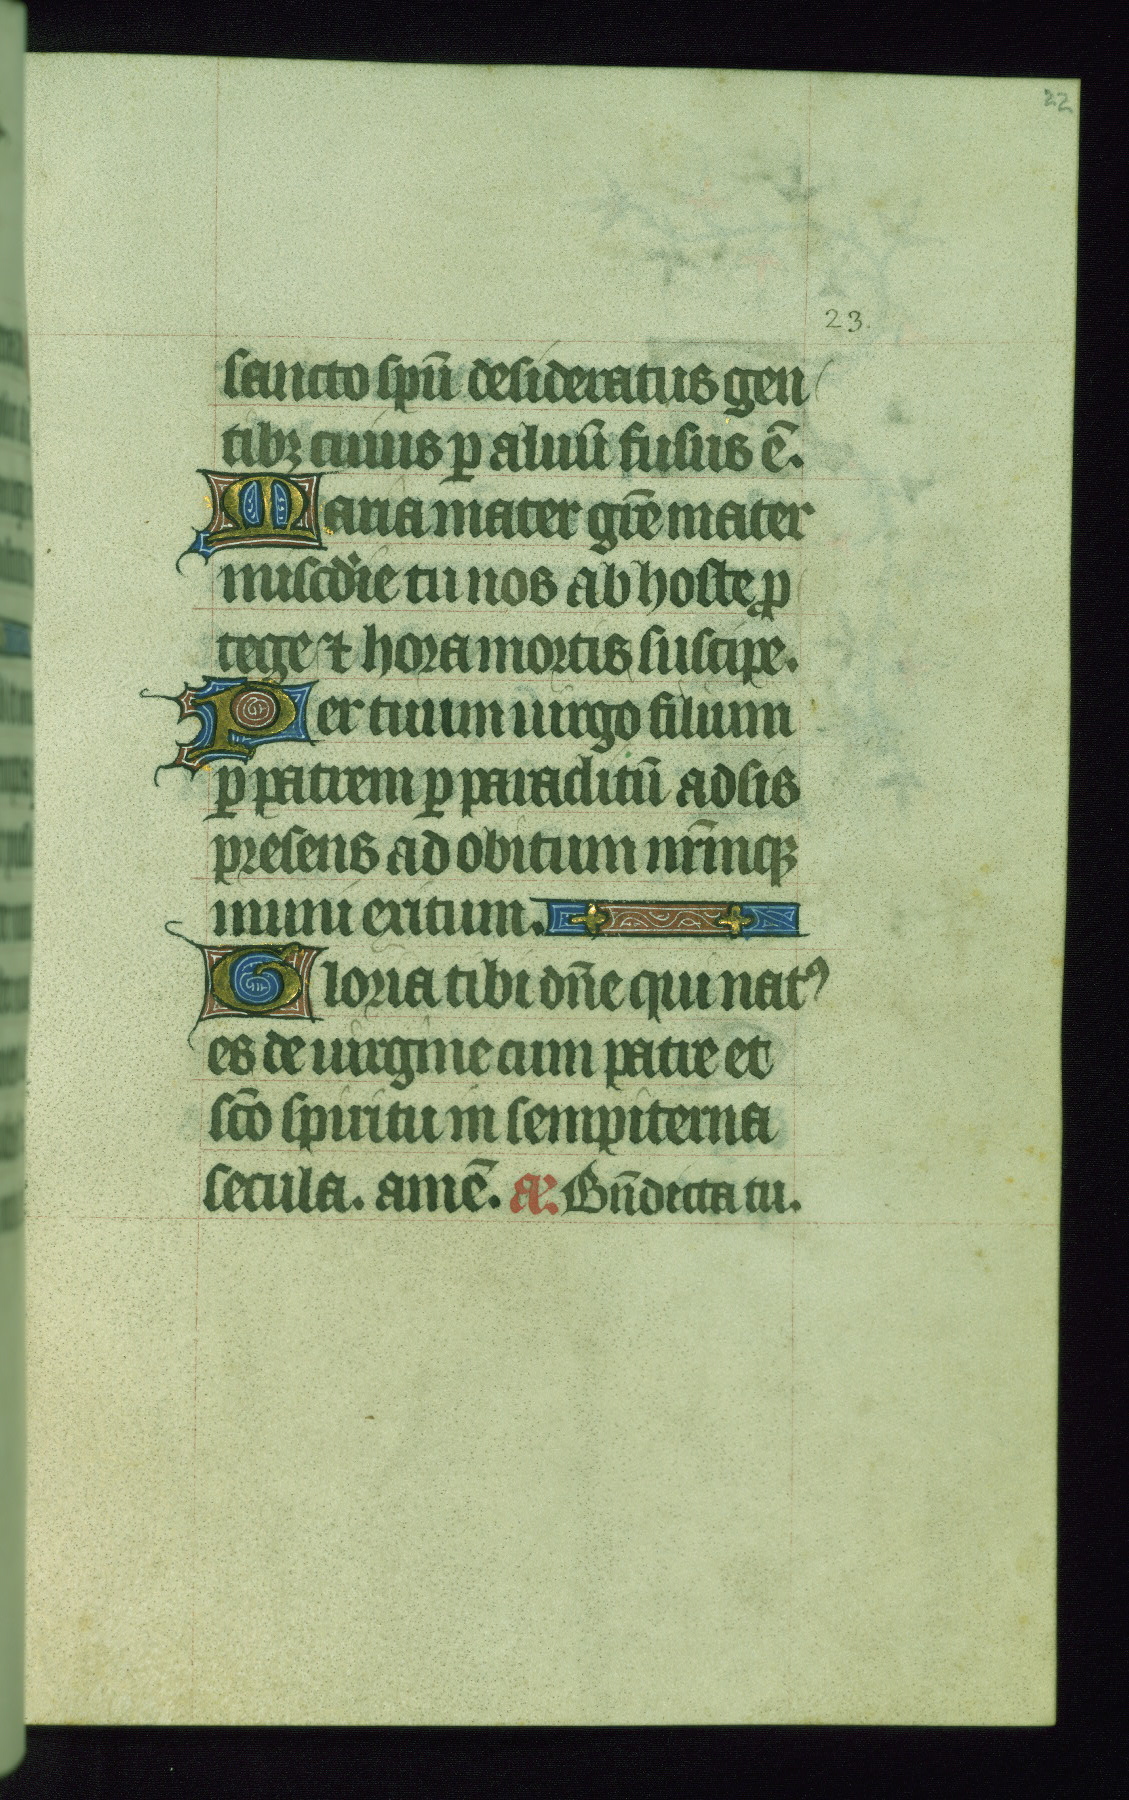 22
23.
sancto spū desideratus gen
tibꝫ cuius ꝑ aluū fusus ē.
Maria mater gr̄e mater
misc̄die tu nos ab hoste ꝓ
tege ⁊ hora mortis suscipe.
Per tuum uirgo filium
ꝑ patrem ꝑ paraclitū adsis
presens ad obitum nr̄mqꝫ
muni exitum.
Gloria tibi dn̄e qui natꝰ
es de uirgine cum patre et
sc̄o spiritu in sempiterna
secula. amē. a͞. Bn̄dicta tu.